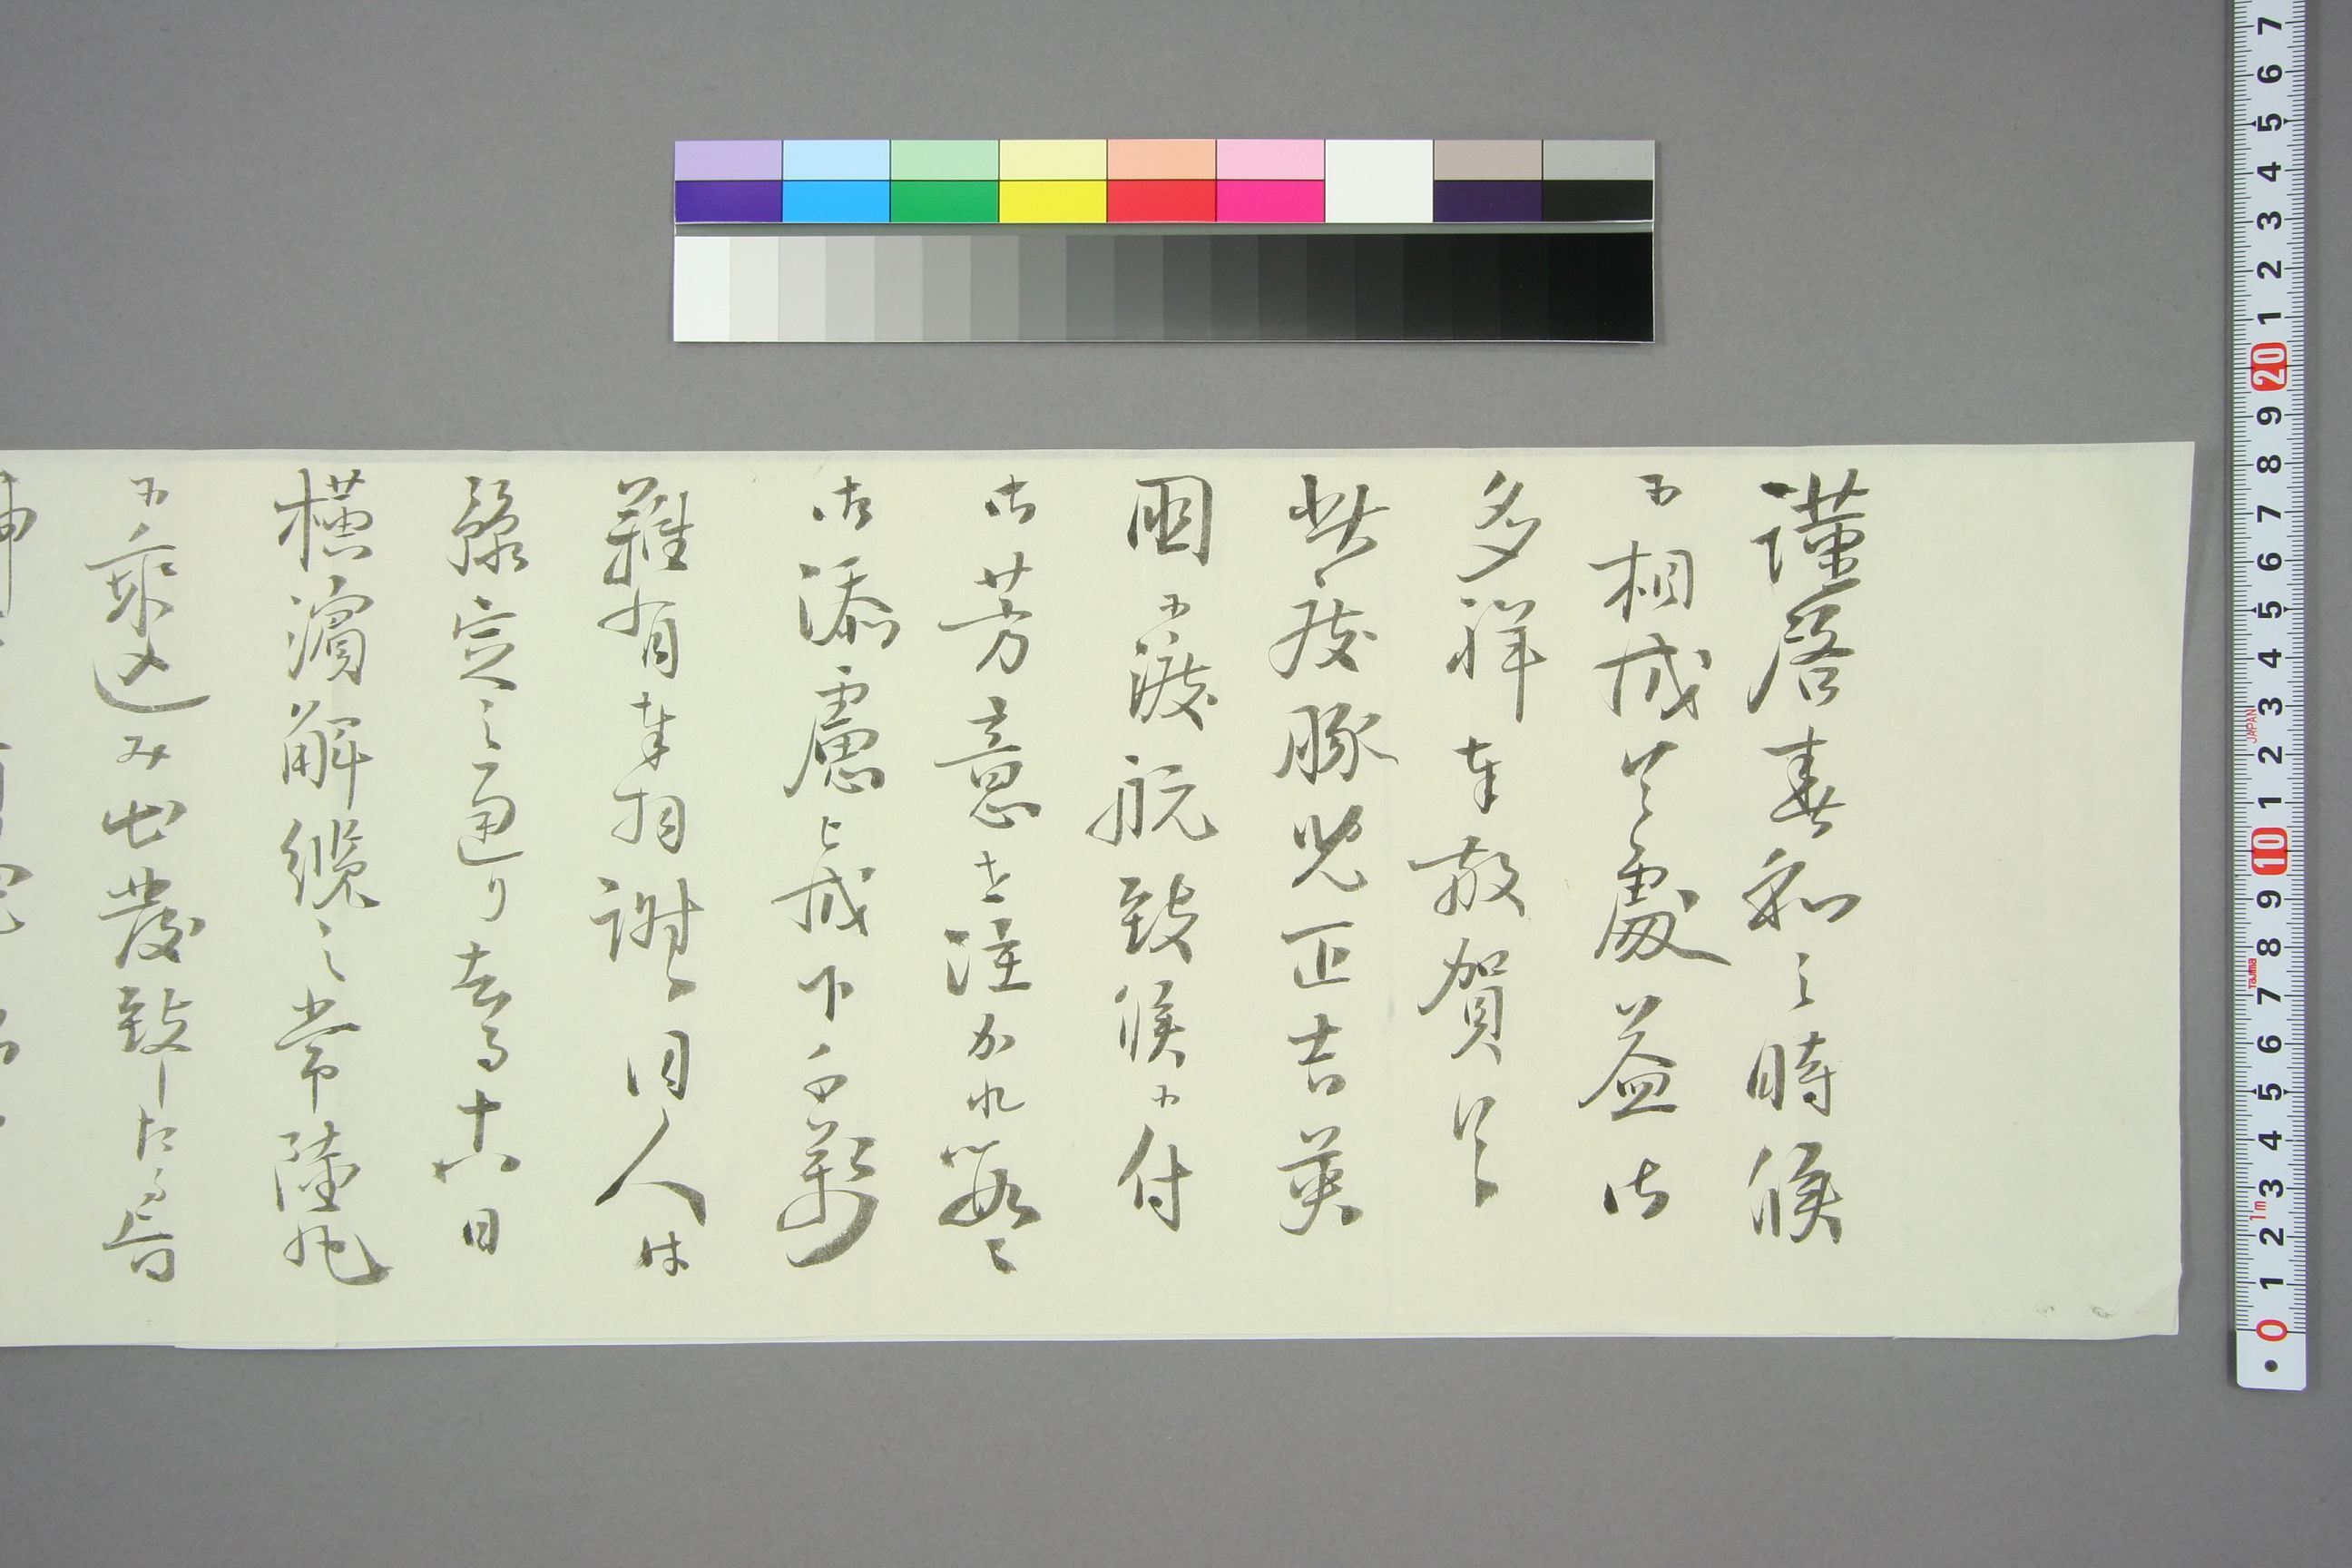 謹啓春和之時候
に相成候處益御
多祥奉敬賀候
此度豚児正吉英
国に渡航致候に付
御芳意を注かれ數々
御添慮被成下千萬
難有奉拝謝候同人は
豫定之通り去る十六日
横濱解纜之常陸丸
に乗込み出發致したる旨
7
6
5
4
3
2
1
20
9
8
7
6
5
4
3
JAPAN
2
1
10
9
8
Tajima
7
6
5
4
3
1m
2
1
0